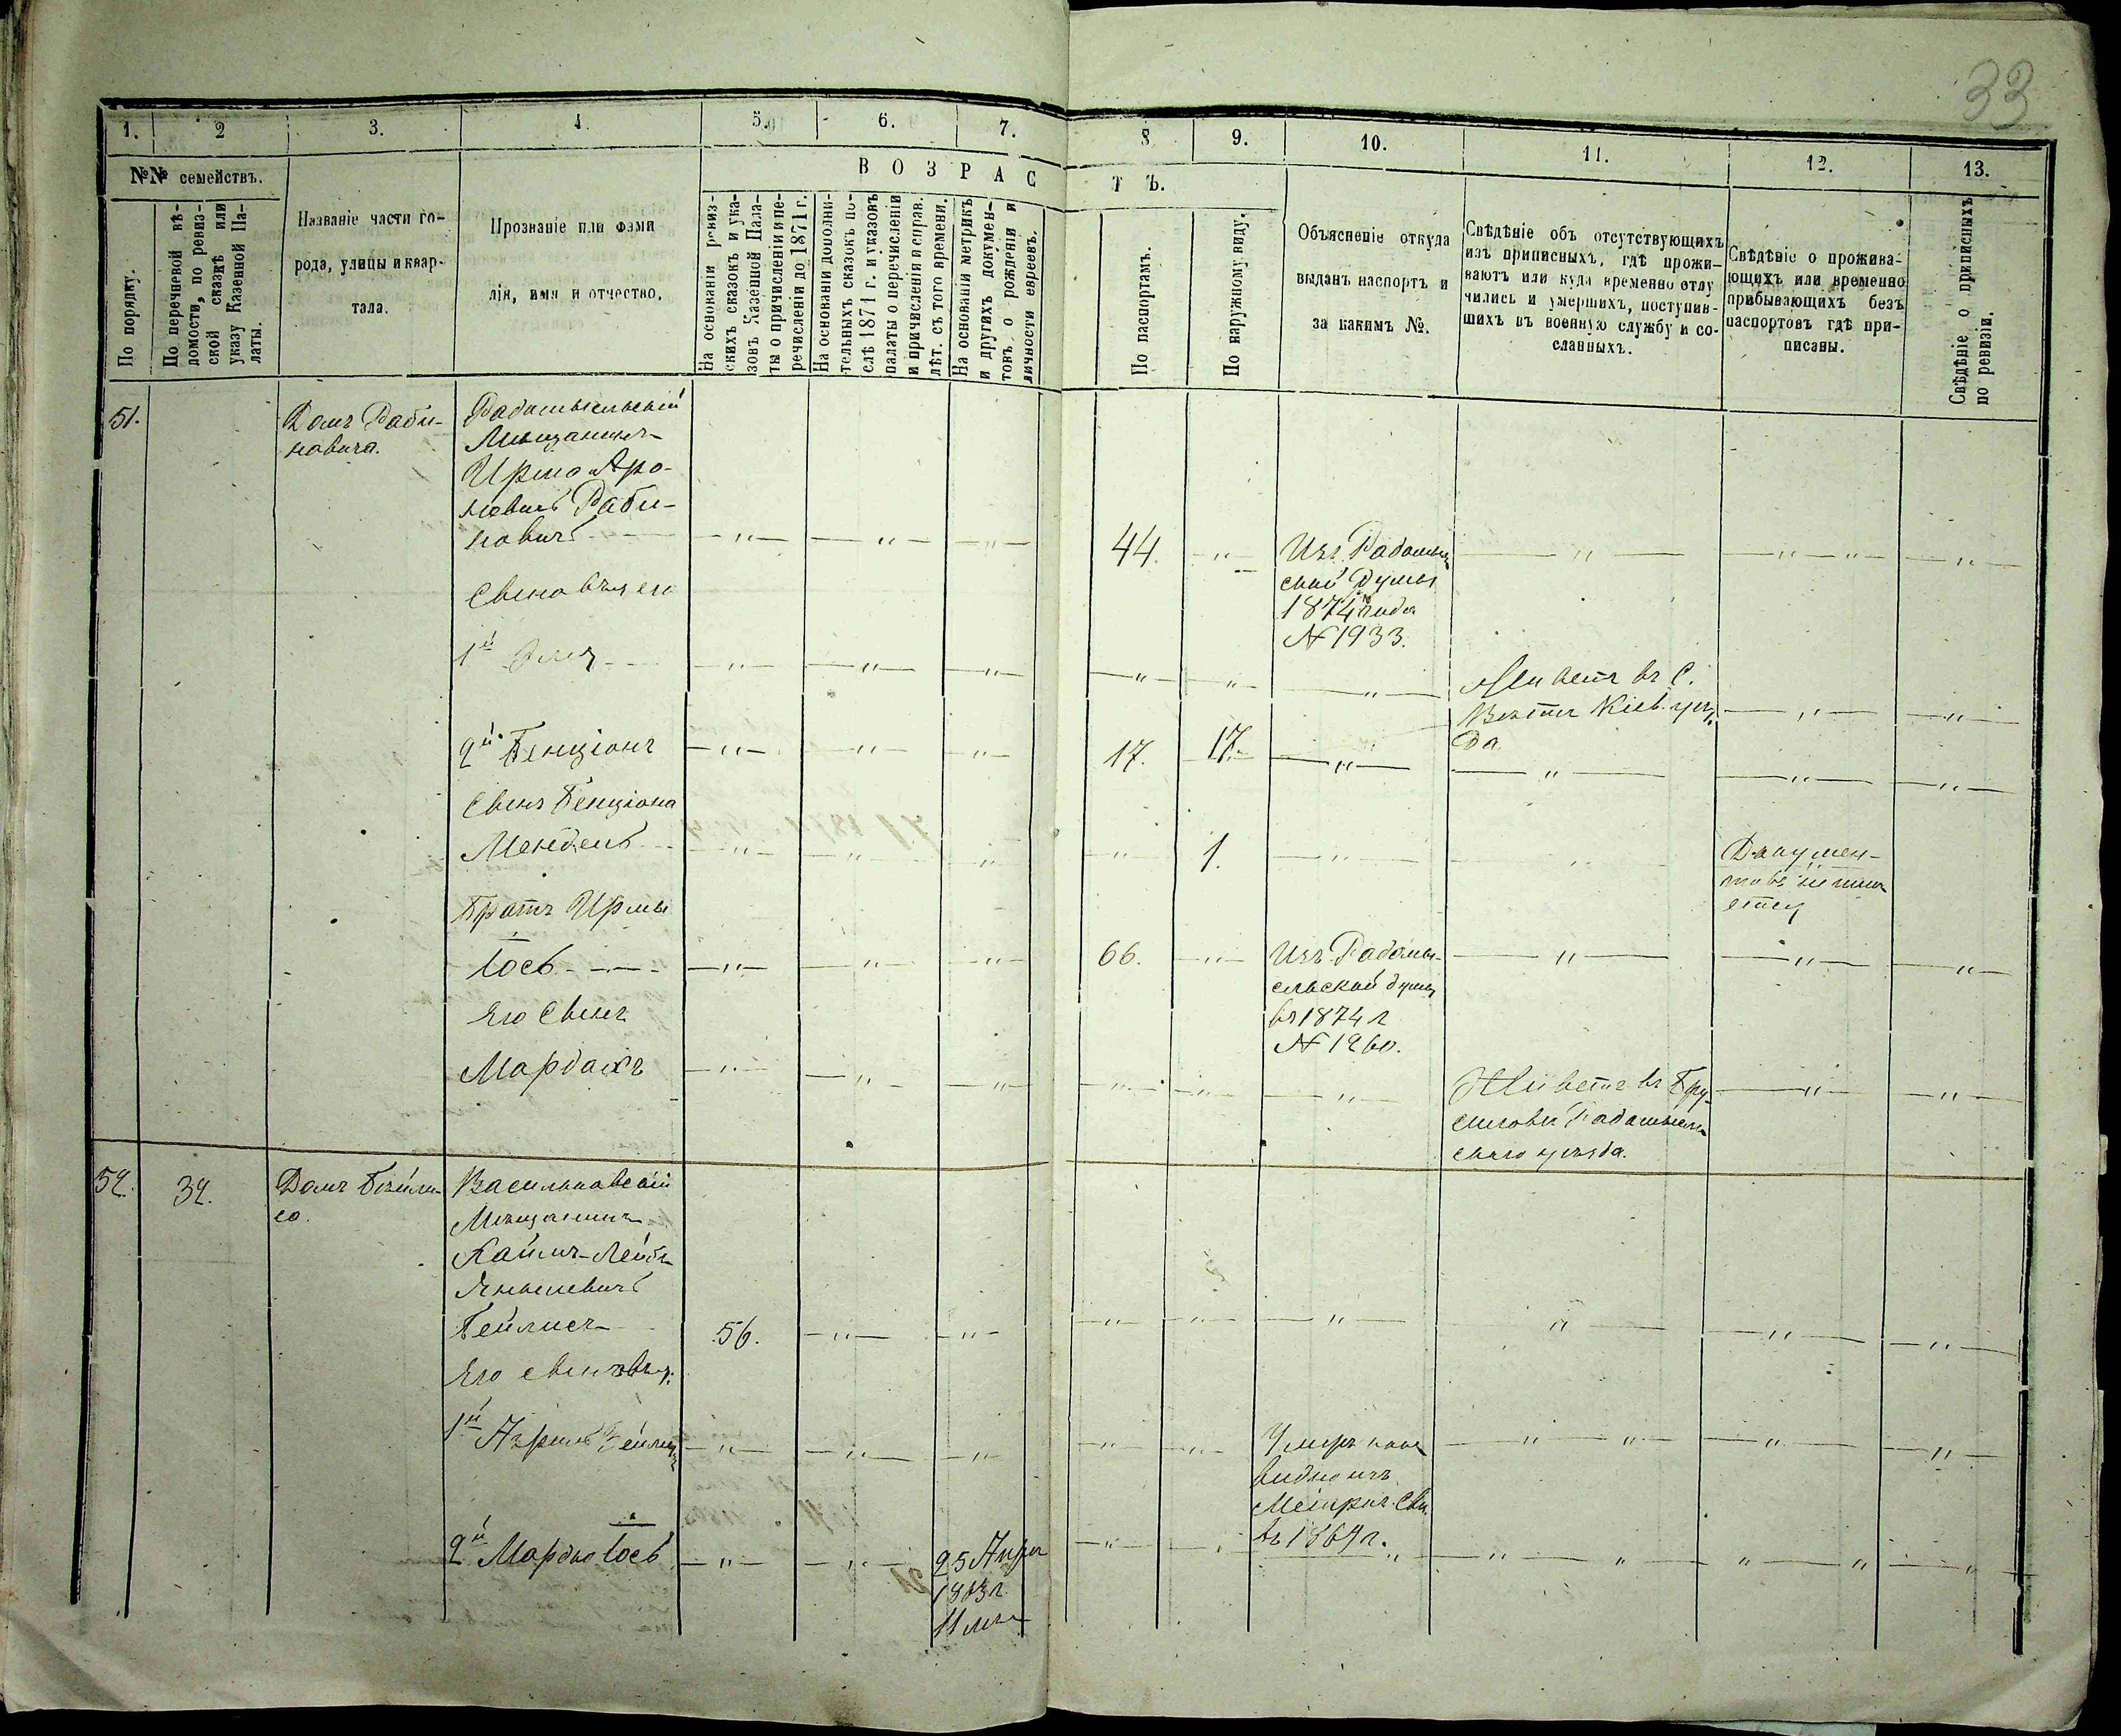 33
1.
2
3.
4.
5.
6.
7.
8
9.
10.
11.
12.
13.
№№ семействъ.
По порядку.
По перечневой вѣ-
домости, по ревиз-
ской сказкѣ или
указу Казенной Па-
латы.
Названіе части го-
рода, улицы и квар-
тала.
Прозваніе или фами
лія, имя и отчество.
ВОЗРАС
ТЪ.
На основаніи ревиз-
скихъ сказокъ и ука-
зовъ Казенной Пала-
ты о причисленіи и пе-
речисленіи до 1871 г.
На основаніи дополни-
тельныхъ сказокъ по-
слѣ 1871 г. и указовъ
палаты о перечисленіи
и причисленія и справ.
лѣт. съ того времени.
На основаніи метрикъ
и другихъ докумен-
товъ, о рожденіи и
личности евреевъ.
По паспортамъ.
По наружному виду.
Объясненіе откуда
выданъ паспортъ и
за какимъ №.
Свѣдѣніе объ отсутствующихъ
изъ приписныхъ, гдѣ прожи-
ваютъ или куда временно отлу
чились и умершихъ, поступив-
шихъ въ военную службу и со-
сланныхъ.
Свѣдѣніе о прожива-
ющихъ или временно
прибывающихъ безъ
паспортовъ гдѣ при-
писаны.
Свѣдѣніе о приписныхъ
по ревизіи.
51.
Домъ Раби-
новича.
Радомысльскій
Мѣщанинъ
Ирма Аро-
новичъ Раби-
новичъ
44.
Изъ Радомысл
ской Думы
1874 года
№ 1933.
Сыновья его
1й
Живетъ въ С.
Кіев. уѣз
да.
2й Бенціонъ
17.
17.
Сынъ Бенціона
Мендель
1.
Докумен-
товъ не имѣ
етъ
Братъ Ирмы
Іось
66.
Изъ Радомы-
сльской думы
въ 1874 г
№ 1260.
Его Сынъ
Мардахъ
Живетъ въ Бру
силовѣ Радомысль
скаго уѣзда.
52.
32.
Домъ Бейли
са.
Васильковскій
Мѣщанинъ
Хаимъ-Лейба
Янкелевичъ
Бейлисъ
56.
Его сыновья:
1й Азриль Бейлисъ
Умеръ какъ
видно изъ
Метрич. Сви.
въ 1869 г.
2й Мардко Іось
25 Апрл
1863 г
11 лѣтъ